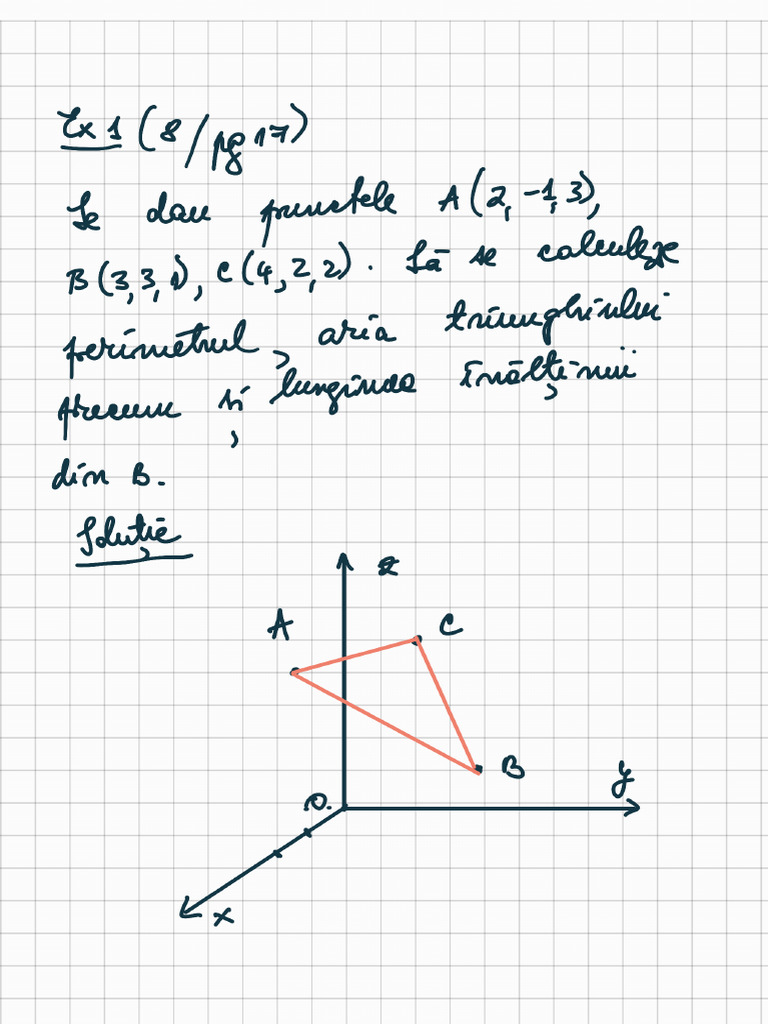 Ex 1 (8/pg 17)
Se dau punctele A(2,-1,3),
B(3,3,1), C(4,2,2). Să se calculeze
perimetrul, aria triunghiului
precum și lungimea înălținii
din B.
Soluție
z
A
C
B
O
y
x